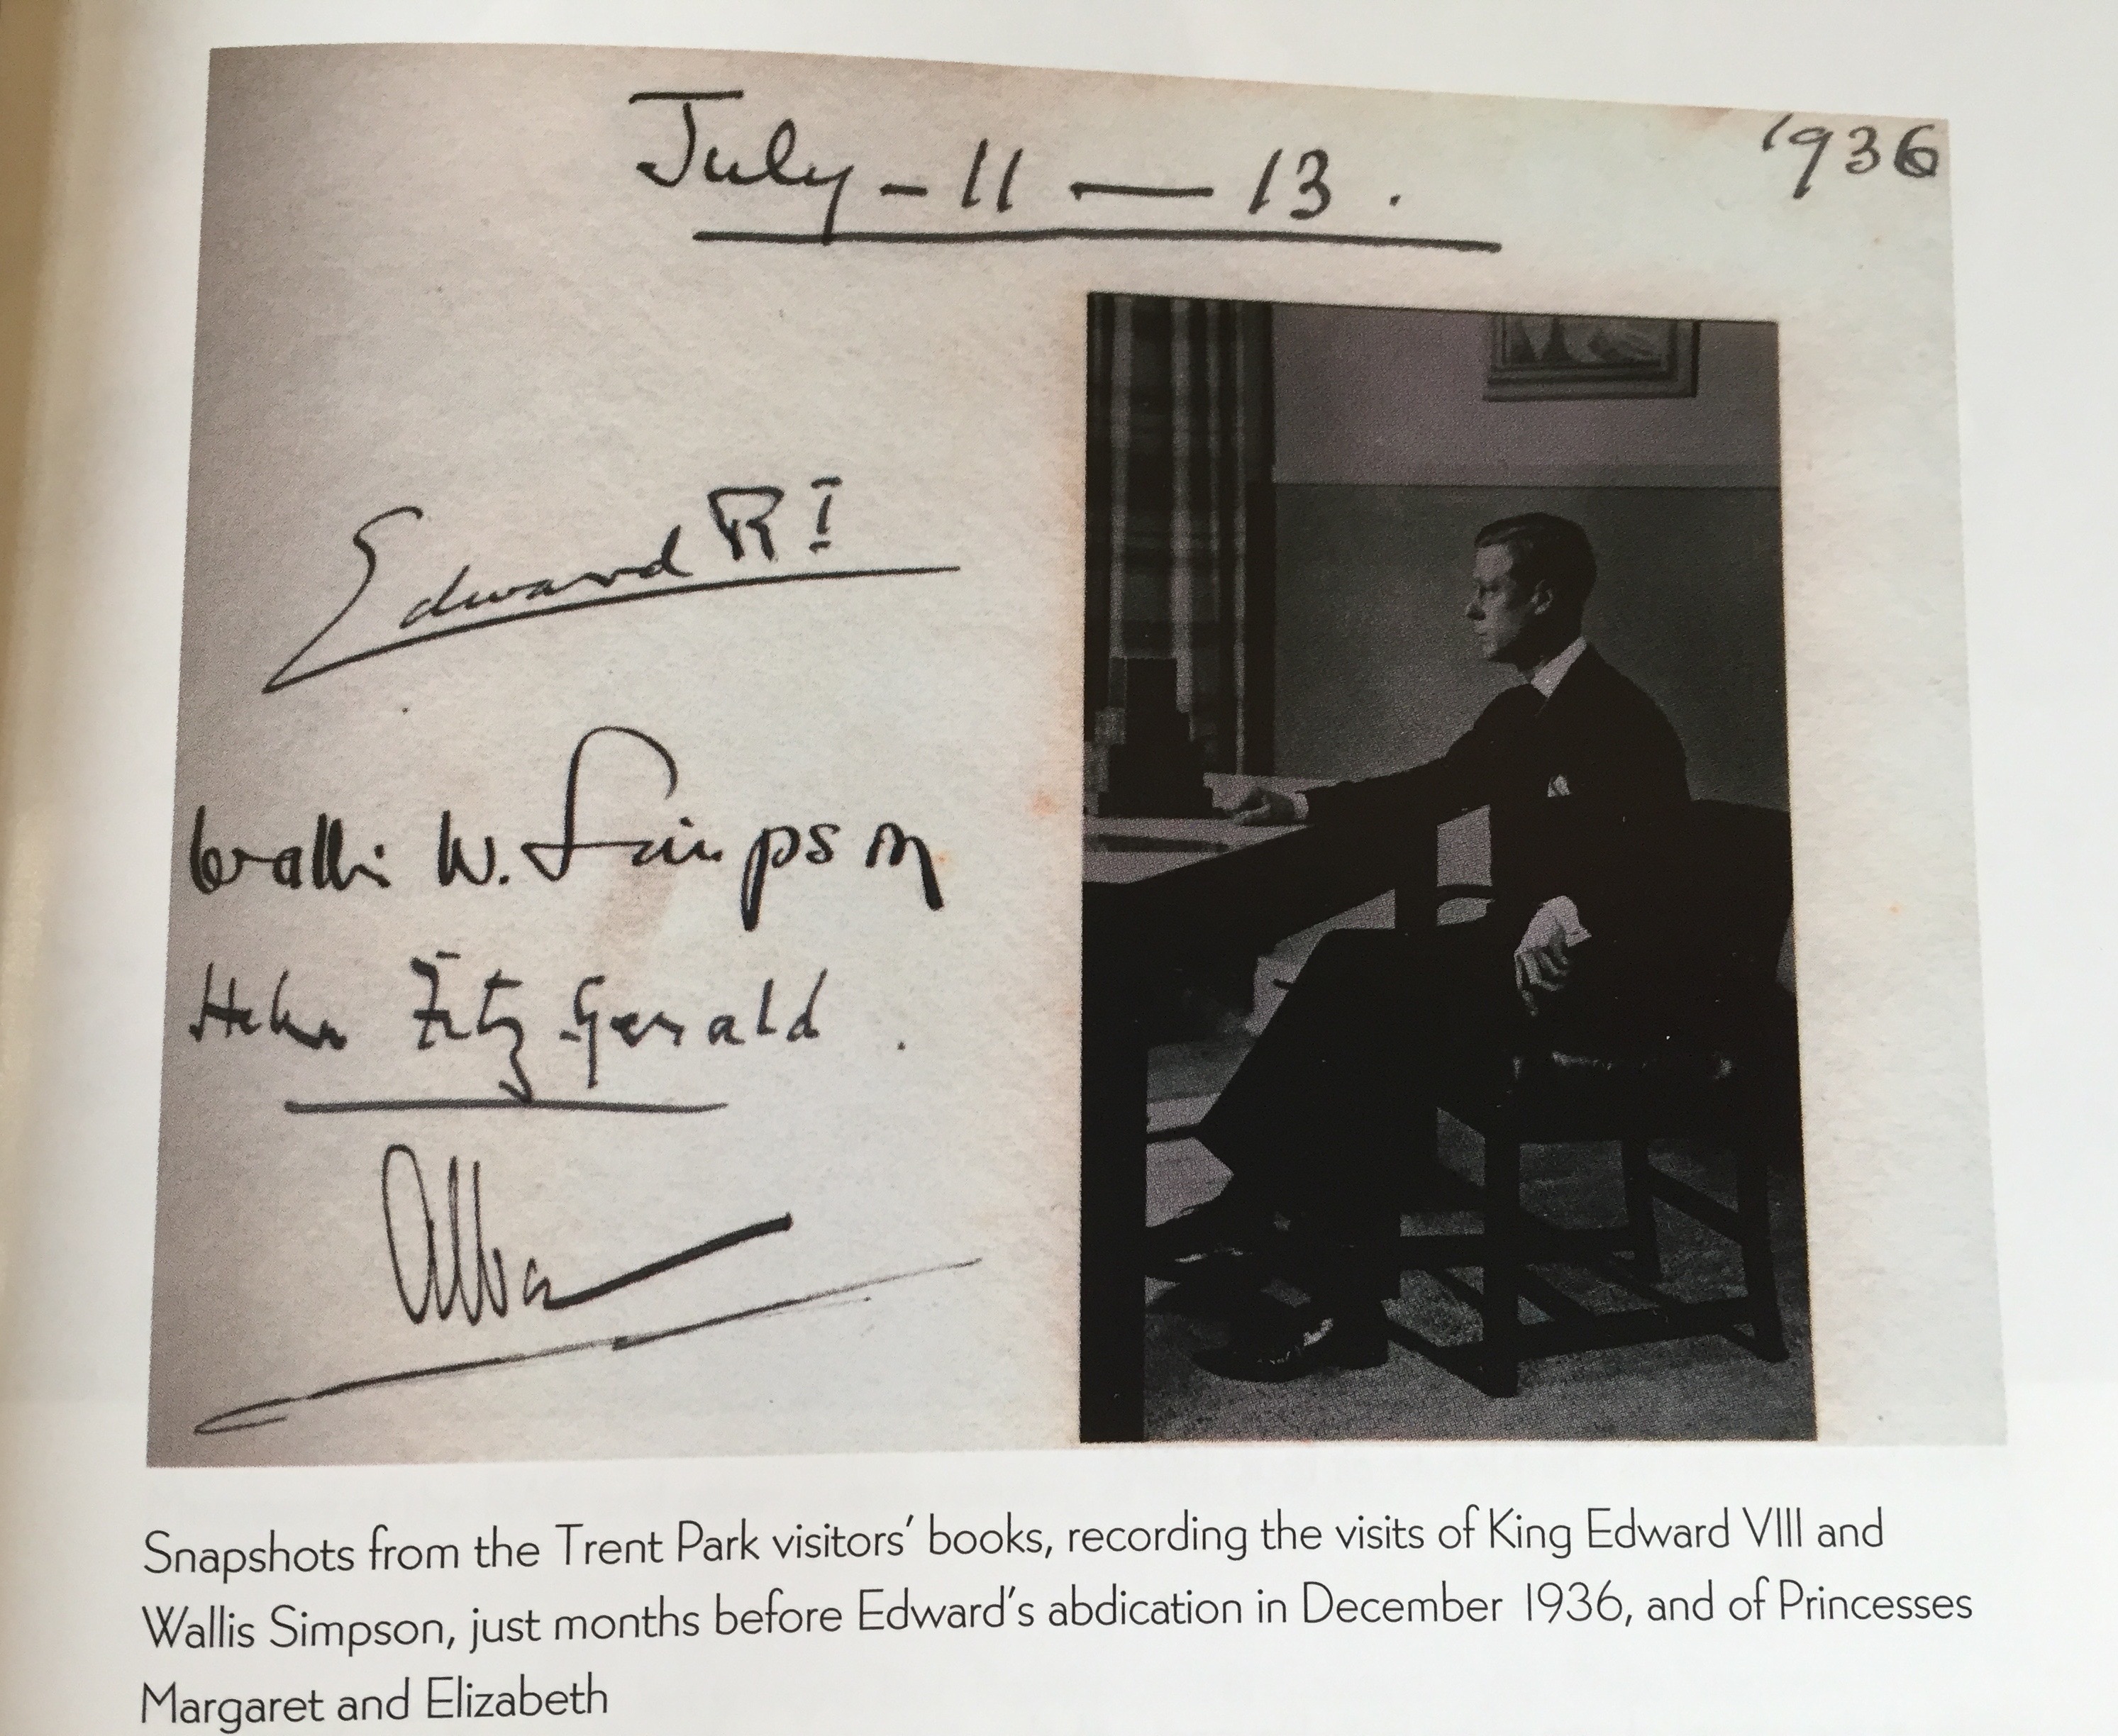 July - 11 — 13.
1936
Edward R I
Wallis W. Simpson
Helen Fitz Gerald.
Snapshots from the Trent Park visitors' books, recording the visits of King Edward VIII and
Wallis Simpson, just months before Edward's abdication in December 1936, and of Princesses
Margaret and Elizabeth